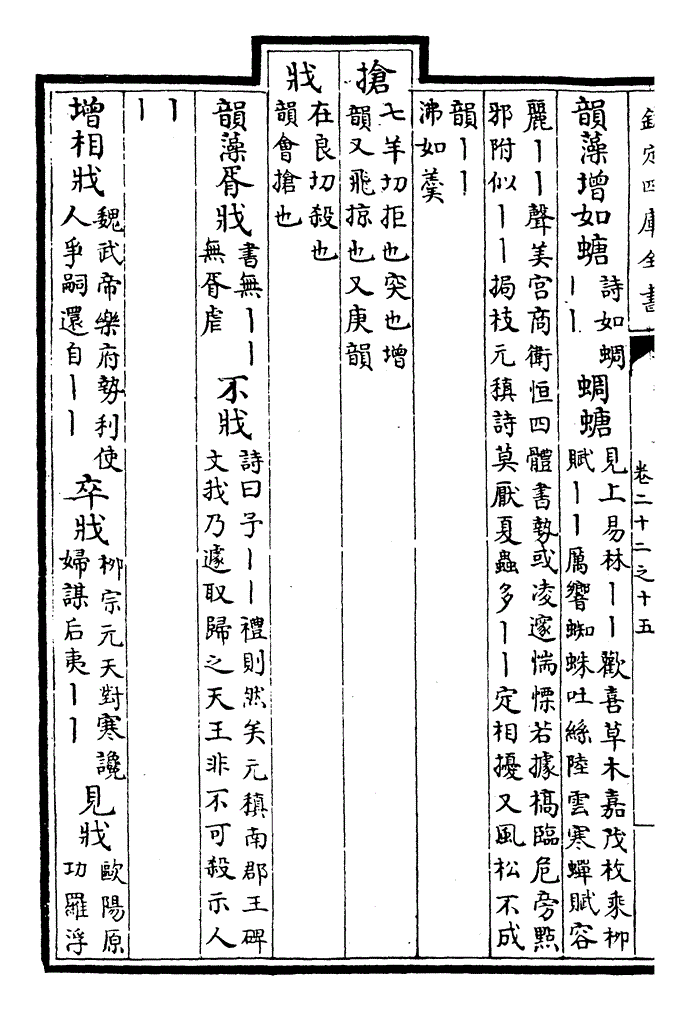 欽定四庫全書 卷二十二之十五
韻藻增如螗 詩如蜩丨丨 蜩螗 見上易林丨丨歡喜草木嘉茂枚乘柳賦丨丨厲響蜘蛛吐絲陸雲寒蟬賦容
麗丨丨聲美宫商衛恒四體書勢或凌邃惴慄若據槁臨危旁點
邪附似丨丨揭枝元稹詩莫厭夏蟲多丨丨定相擾又風松不成
韻丨丨
沸如羹
搶 七羊切拒也突也增韻又飛掠也又庚韻
戕 在良切殺也韻會搶也
韻藻胥戕 書無丨丨無胥虐 不戕 詩曰予丨丨禮則然矣元稹南郡王碑文我乃遽取歸之天王非不可殺示人
丨
丨
增相戕 魏武帝樂府勢利使人爭嗣還自丨丨 卒戕 柳宗元天對寒讒婦謀后夷丨丨 見戕 歐陽原功羅浮